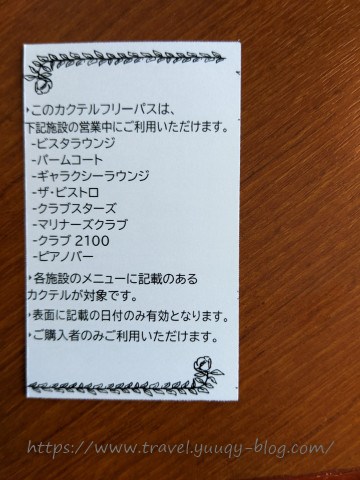 ・このカクテルフリーパスは、
下記施設の営業中にご利用いただけます。
-ビスタラウンジ
-パームコート
-ギャラクシーラウンジ
-ザ・ビストロ
-クラブスターズ
-マリナーズクラブ
-クラブ 2100
-ピアノバー
・各施設のメニューに記載のある
カクテルが対象です。
・表面に記載の日付のみ有効となります。
・ご購入者のみご利用いただけます。
https://www.travel.yuuqy-blog.com/